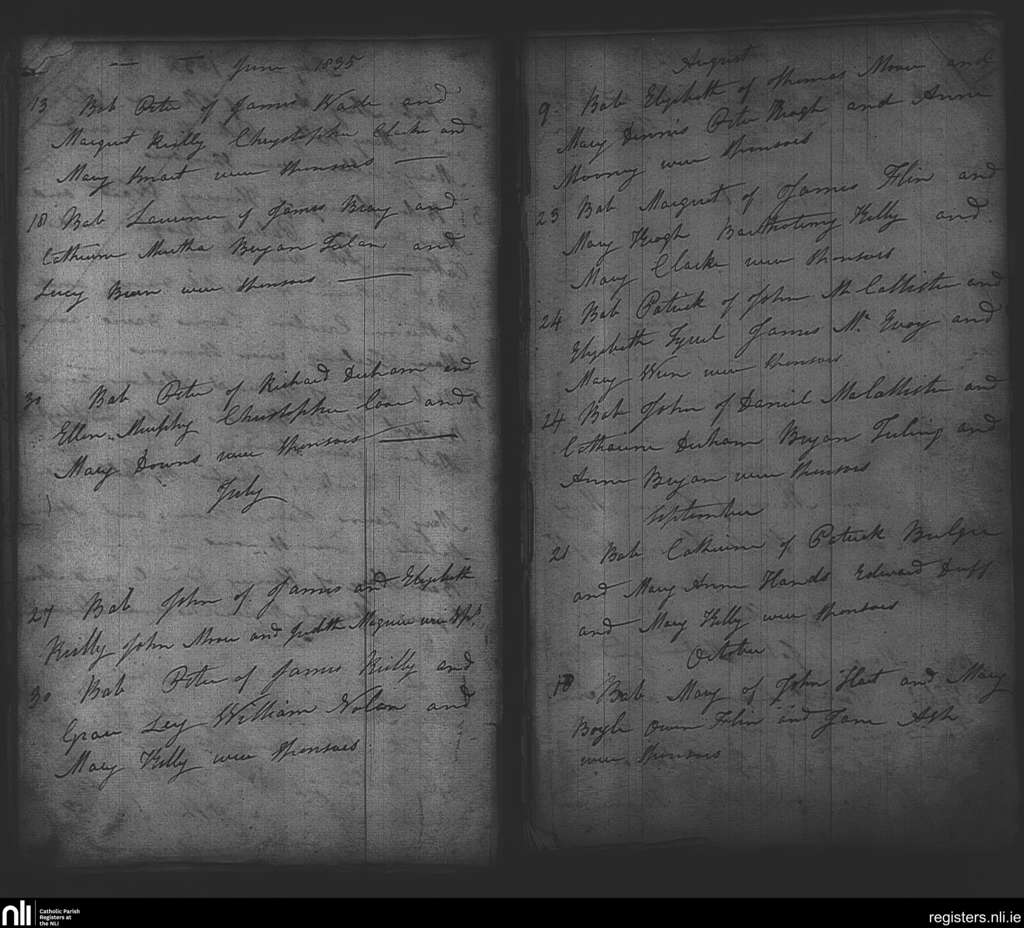 June 1835
13 Bab Peter of James Wade and
Margret Reilly Chrystopher Clarke and
Mary Smart were Sponsors
18 Bab Laurence of James Bray and
Catherine Murtha Bryan Falan and
Lucy Bern were Sponsors
30 Bab Peter of Richard Durham and
Ellen Murphy Christopher Coar and
Mary Downs were Sponsors
July
27 Bab John of James and Elizabeth
Reilly John Moore and Judith Maguire were Sps
30 Bab Peter of James Reilly and
Grace Ley William Nolan and
Mary Kelly were Sponsors.
August
9. Bab Elizabeth of Thomas Moore and
Mary Dennis Peter Keogh and Anne
Mooney were Sponsors
23 Bab Margret of James Flin and
Mary Keogh Bartholemy Kelly and
Mary Clarke were Sponsors
24 Bab Patrick of John McCallister and
Elizabeth Tyrrel James Mc Evoy and
Mary were Sponsors
24 Bab John of Daniel McCallister and
Catharine Durham Bryan and
Anne Bryan were Sponsors
September
21 Bab Catherine of Patrick Bulger
and Mary Anne Hands Edward Duff
and Mary Kelly were Sponsors
October
18 Bab Mary of John Hart and Mary
Bogle Owen Flin and Jane Ash
were Sponsors
nli
Catholic Parish
Registers at
the NLI
registers.nli.ie